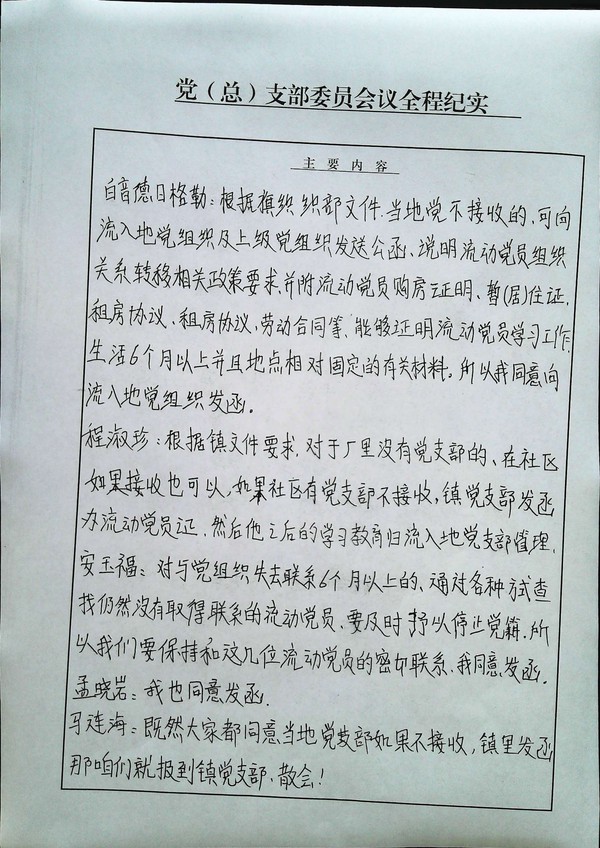 党（总）支部委员会议全程纪实
主要内容
白音德日格勒：根据旗组织部文件.当地党不接收的、可向
流入地党组织及上级党组织发送公函、说明流动党员组织
关系转移相关政策要求.并附流动党员购房证明、暂(居)住证、
租房协议、租房协议、劳动合同等、能够证明流动党员学习工作、
生活6个月以上并且地点相对固定的有关材料。所以我同意向
流入地党组织发函.
程淑珍：根据镇文件要求.对于厂里没有党支部的、在社区
如果接收也可以,如果社区有党支部不接收,镇党支部发函
办流动党员证.然后他之后的学习教育归流入地党支部管理.
安玉福：对与党组织失去联系6个月以上的、通过各种方式查
找仍然没有取得联系的流动党员、要及时予以停止党籍.所
以我们要保持和这几位流动党员的密切联系.我同意发函.
孟晓岩：我也同意发函.
马连海：既然大家都同意当地党支部如果不接收,镇里发函
那咱们就报到镇党支部、散会！